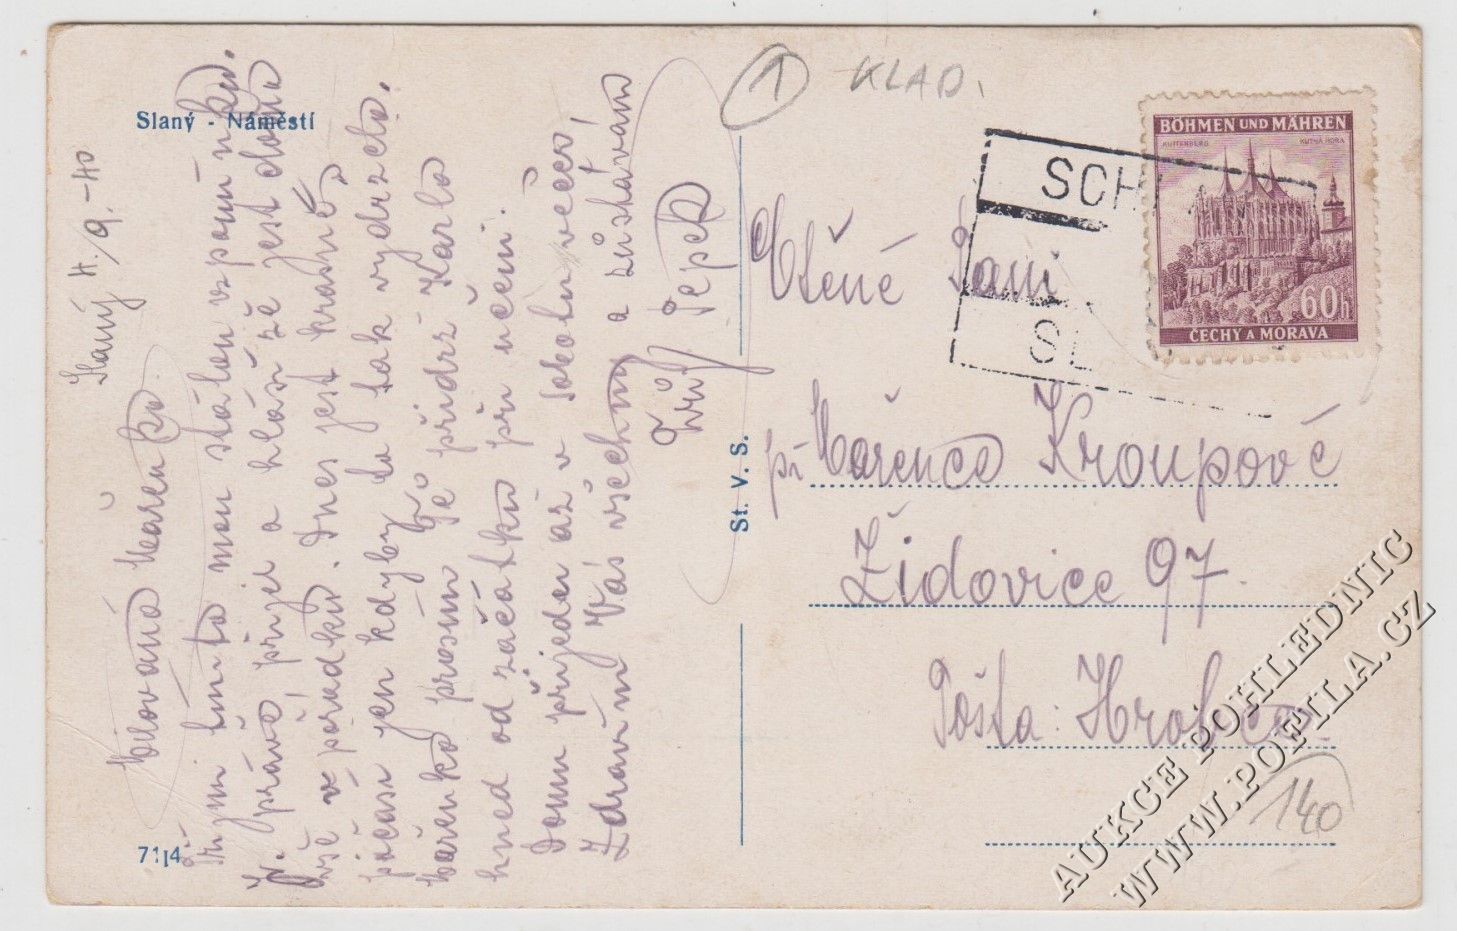 Slaný - Náměstí
Slaný 4./9.-40
Milovaná Mařenko.
Přijmi tímto mou stálou vzpomínku.
Jv. právě přijel a hlásí že jest doma
vše v pořádku. Dnes jest krásné
počasí jen kdyby to tak vydrželo.
Mařenko prosím Tě přidrž Karla
hned od začátku při učení.
Domu přijedu až v sobotu večer,
Zdravím Vás všechny a zůstávám
Tvůj Pepa
71|4
St. V. S.
1 KLAD.
BÖHMEN UND MÄHREN
KUTTENBERG KUTNÁ HORA
60h
ČECHY A MORAVA
SCHLAN
SL
Ctěné Paní
pí Mařence Kroupové
Židovice 97.
Pošta: Hrobce.
140
AUKCE POHLEDNIC
WWW.POFILA.CZ